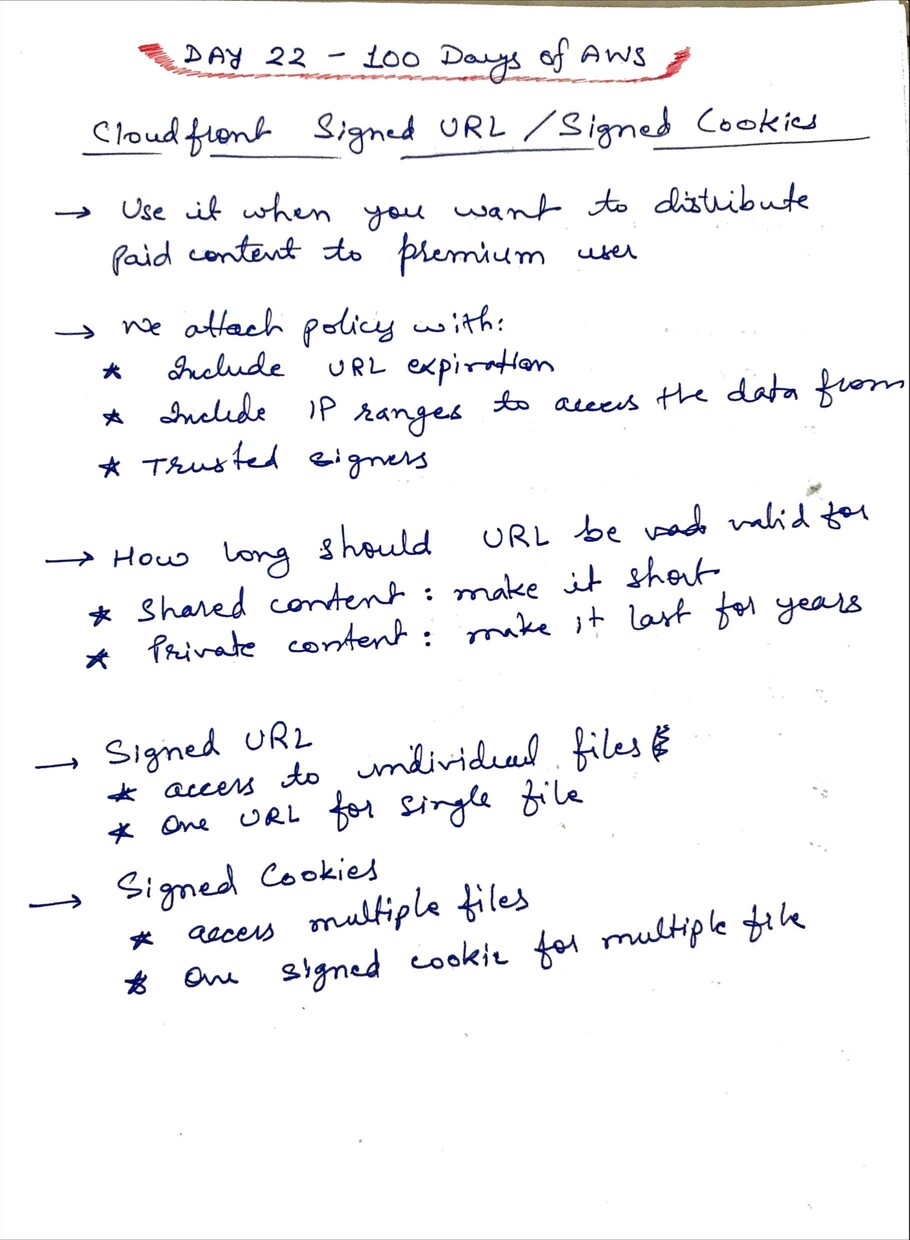 DAY 22 - 100 Days of AWS
Cloudfront Signed URL / Signed Cookies
→ Use it when you want to distribute
paid content to premium user
→ We attach policy with:
* Include URL expiration
* Include IP ranges to access the data from
* Trusted signers
→ How long should URL be valid for
* Shared content : make it short
* Private content : make it last for years
→ Signed URL
* access to individual files
* One URL for single file
→ Signed Cookies
* access multiple files
* One signed cookie for multiple file